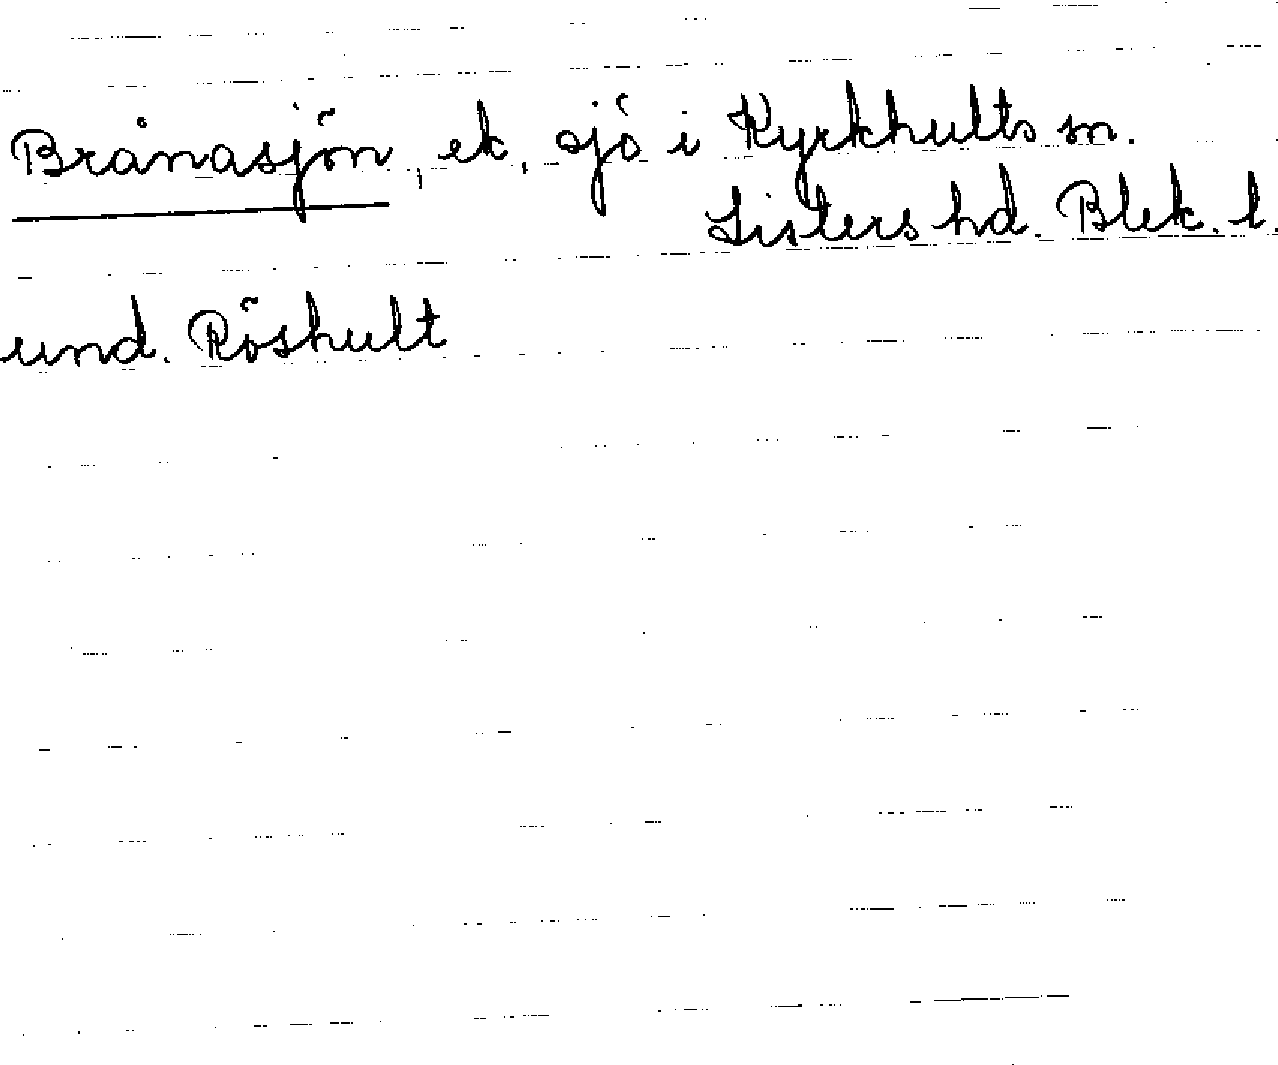 Brånasjön, ek, sjö i Kyrkhults sn.
Listers hd. Blek. l.
und. Röshult